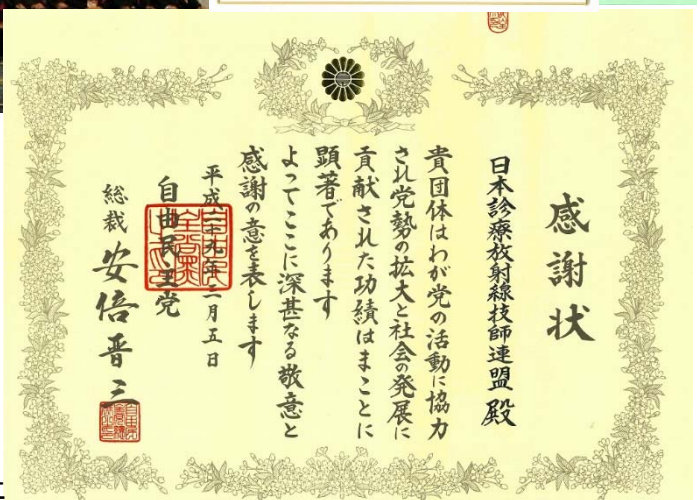 感謝状
日本診療放射線技師連盟 殿
貴団体はわが党の活動に協力
され党勢の拡大と社会の発展に
貢献された功績はまことに
顕著であります
よってここに深甚なる敬意と
感謝の意を表します
平成二十九年三月五日
自由民主党
総裁 安倍晋三